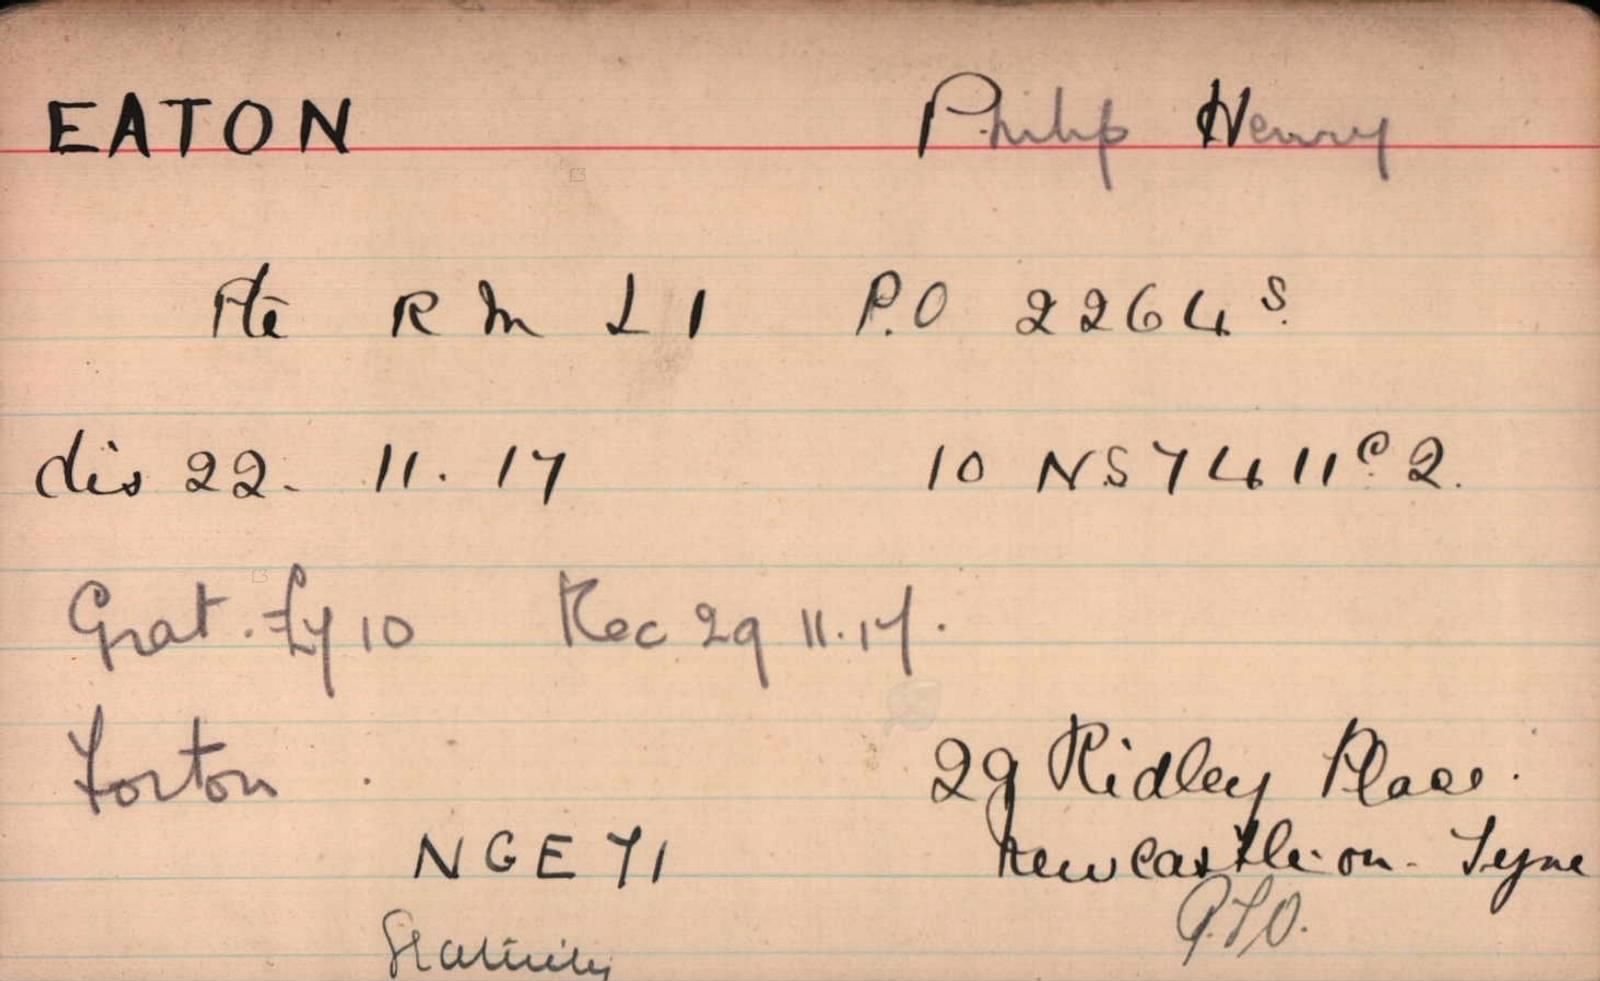 EATON Philip Henry
Pte R M L I P.O 2264 S.
dis 22. 11. 17 10 NS 7411 C 2.
Grat. £7 10 Rec 29 11.17.
Forton 29 Ridley Place.
NGE 71 Newcastle-on-Tyne
Gratuity P.T.O.